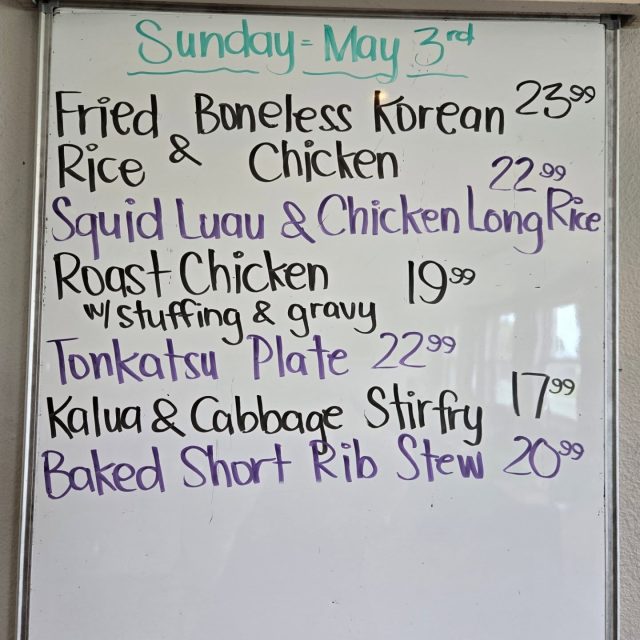 Sunday - May 3rd
Fried Boneless Korean 23⁹⁹
Rice & Chicken 22⁹⁹
Squid Luau & Chicken Long Rice
Roast Chicken 19⁹⁹
w/ stuffing & gravy
Tonkatsu Plate 22⁹⁹
Kalua & Cabbage Stirfry 17⁹⁹
Baked Short Rib Stew 20⁹⁹